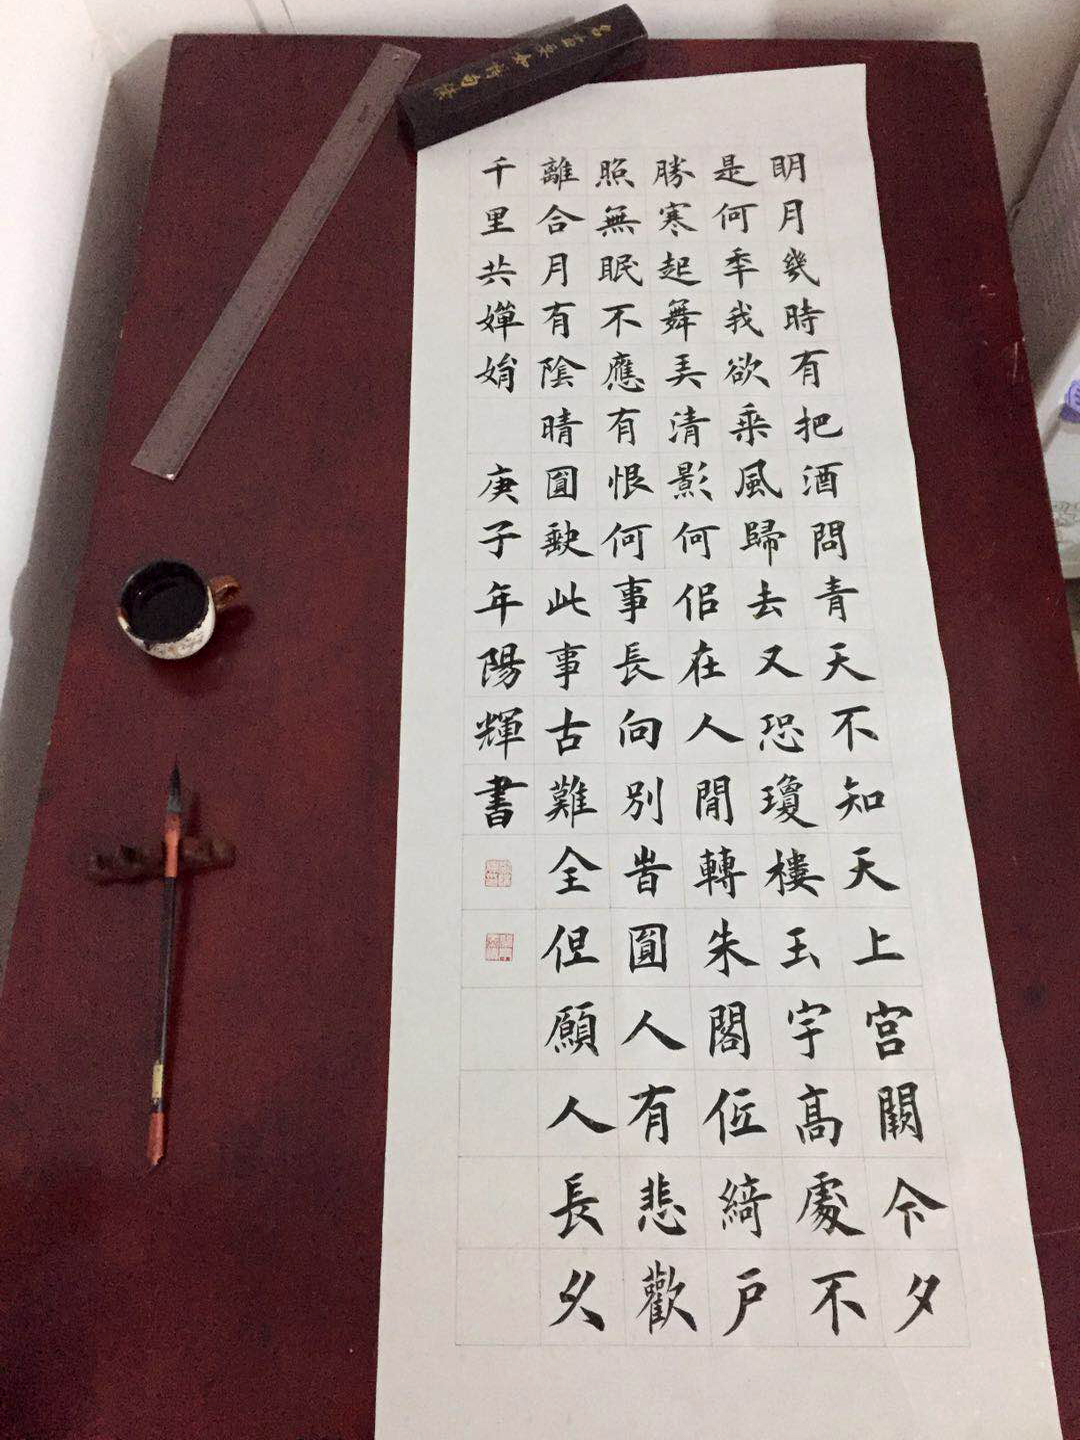 明月幾時有把酒問青天不知天上宮闕今夕
是何年我欲乘風歸去又恐瓊樓玉宇高處不
勝寒起舞弄清影何佀在人間轉朱閣低綺戶
照無眠不應有恨何事長向別旹圓人有悲歡
離合月有陰晴圓缺此事古難全但願人長久
千里共嬋娟 庚子年陽輝書